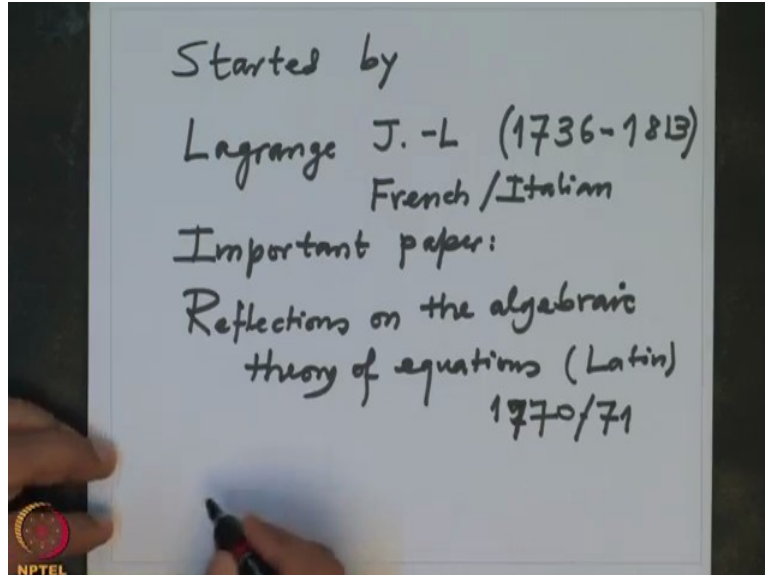 Started by
Lagrange J.-L (1736-1813)
French/Italian
Important paper:
Reflections on the algebraic
theory of equations (Latin)
1770/71
NPTEL